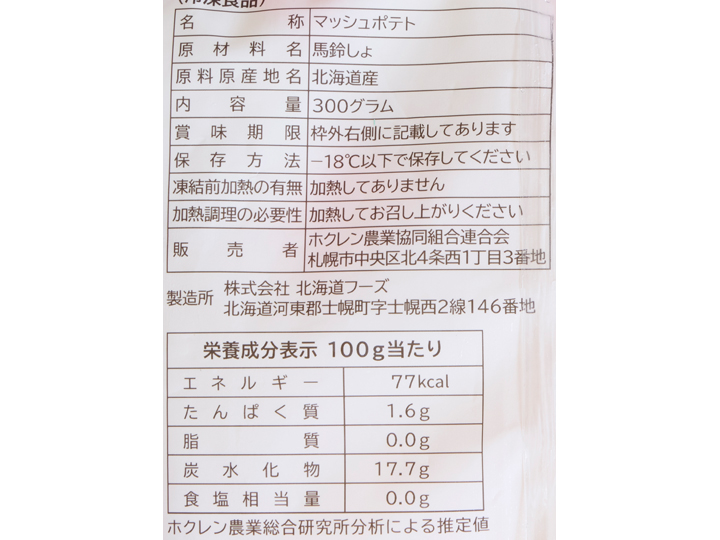 (冷凍食品)
名称 マッシュポテト
原材料名 馬鈴しょ
原料原産地名 北海道産
内容量 300グラム
賞味期限 枠外右側に記載してあります
保存方法 −18℃以下で保存してください
凍結前加熱の有無 加熱してありません
加熱調理の必要性 加熱してお召し上がりください
販売者 ホクレン農業協同組合連合会
札幌市中央区北4条西1丁目3番地
製造所 株式会社 北海道フーズ
北海道河東郡士幌町字士幌西2線146番地
栄養成分表示 100g当たり
エネルギー 77kcal
たんぱく質 1.6g
脂質 0.0g
炭水化物 17.7g
食塩相当量 0.0g
ホクレン農業総合研究所分析による推定値